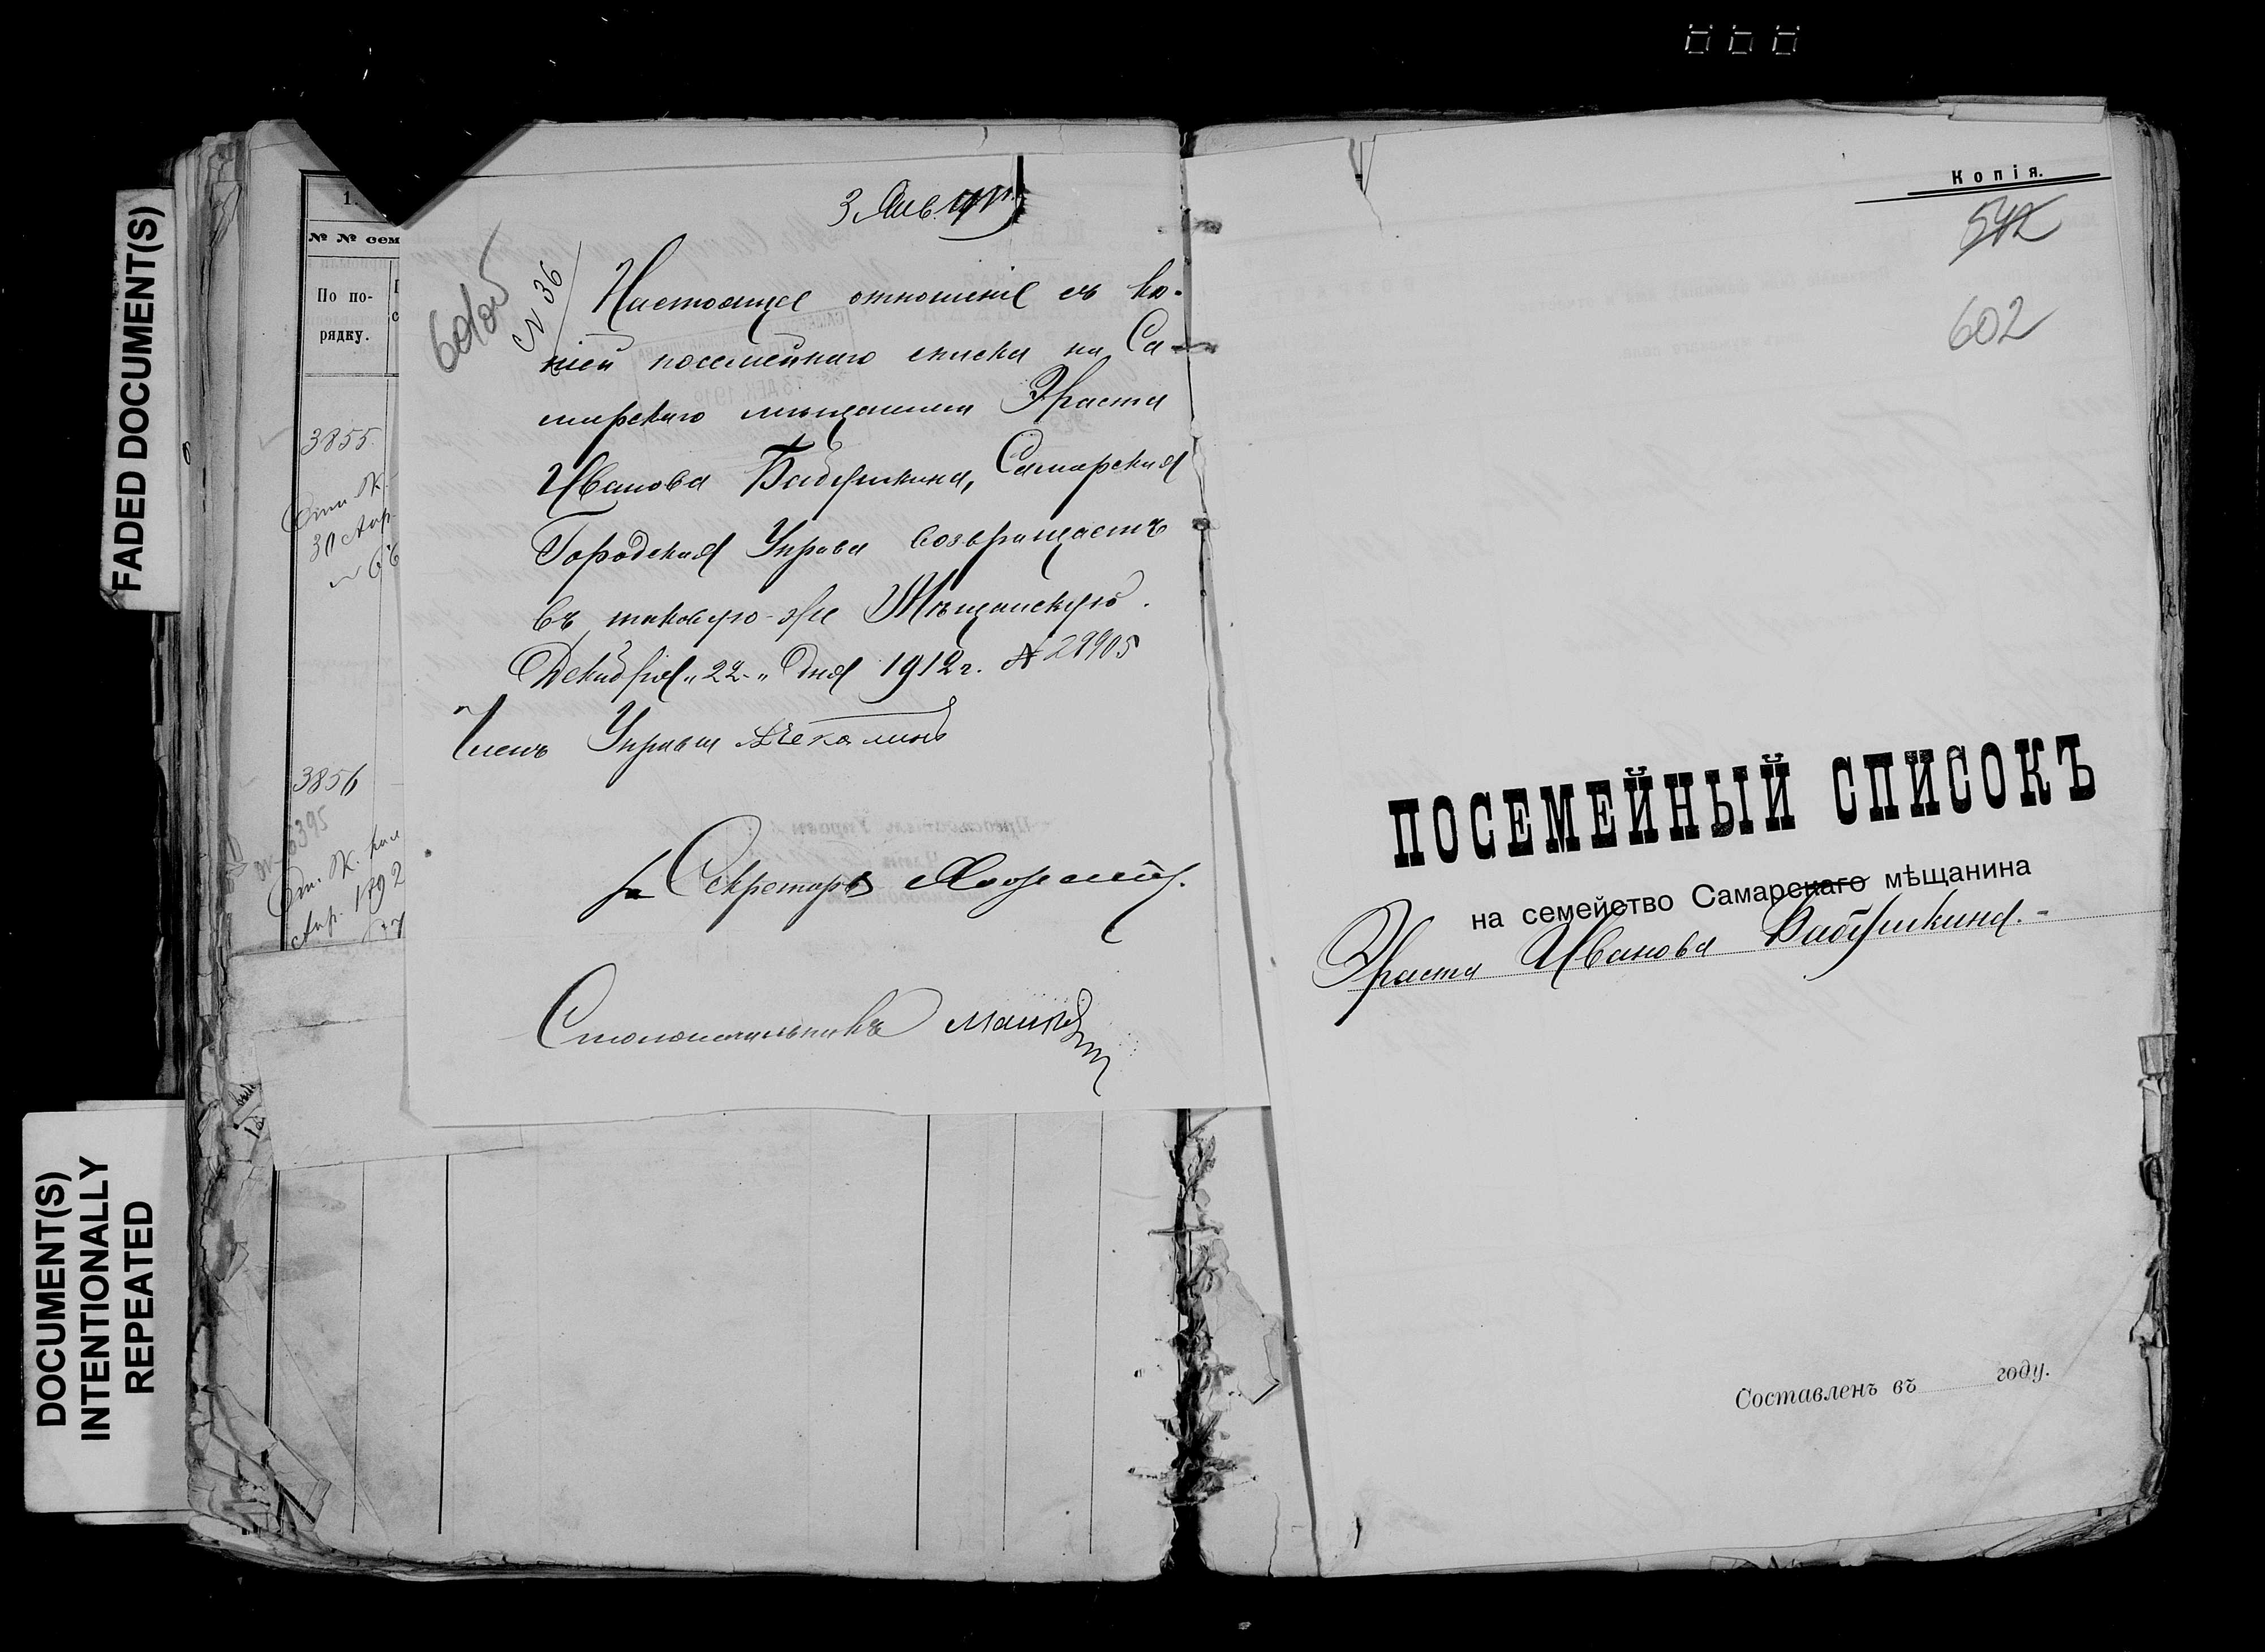 FADED DOCUMENT(S)
DOCUMENT(S)
INTENTIONALLY
REPEATED
1.
№ № сем
По по-
рядку.
3855.
30 Апр.
3856
Апр. 1892
3 Янв.
601об
№ 36
Настоящее отношеніе съ ко-
піей посемейнаго списка на Са-
марскаго мѣщанина Эраста
Иванова Бабушкина, Самарская
Городская Управа возвращаетъ
въ таковую-же Мѣщанскую.
Декабря „22„ дня 1912 г. № 29905
Членъ Управы Чекалинъ
Секретарь
Столоначальникъ
Копія.
542
602
ПОСЕМЕЙНЫЙ СПИСОКЪ
на семейство Самарскаго мѣщанина
Эраста Иванова Бабушкина.-
Составленъ въ году.